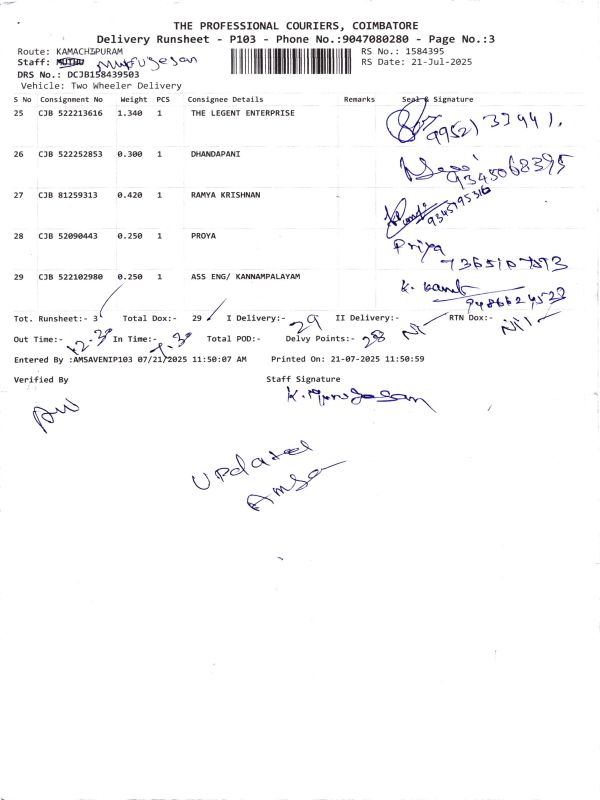 THE PROFESSIONAL COURIERS, COIMBATORE
Delivery Runsheet - P103 - Phone No.:9047080280 - Page No.:3
Route: KAMACHIPURAM RS No.: 1584395
Staff: MUTHU Murugesan RS Date: 21-Jul-2025
DRS No.: DCJB158439503
Vehicle: Two Wheeler Delivery
S No Consignment No Weight PCS Consignee Details Remarks Seal & Signature
25 CJB 522213616 1.340 1 THE LEGENT ENTERPRISE
26 CJB 522252853 0.300 1 DHANDAPANI 9345068395
27 CJB 81259313 0.420 1 RAMYA KRISHNAN
28 CJB 52090443 0.250 1 PROYA Priya
29 CJB 522102980 0.250 1 ASS ENG/ KANNAMPALAYAM K.
9486624523
Tot. Runsheet:- 3 Total Dox:- 29 I Delivery:- 29 II Delivery:- RTN Dox:- Nil
Out Time:- 12-30 In Time:- Total POD:- Delvy Points:- 28
Entered By :AMSAVENIP103 07/21/2025 11:50:07 AM Printed On: 21-07-2025 11:50:59
Verified By Staff Signature
K. Murugesan
Updated
Amsa